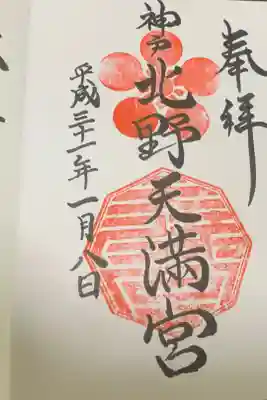 奉拝
神戸北野天満宮
平成三十一年一月八日